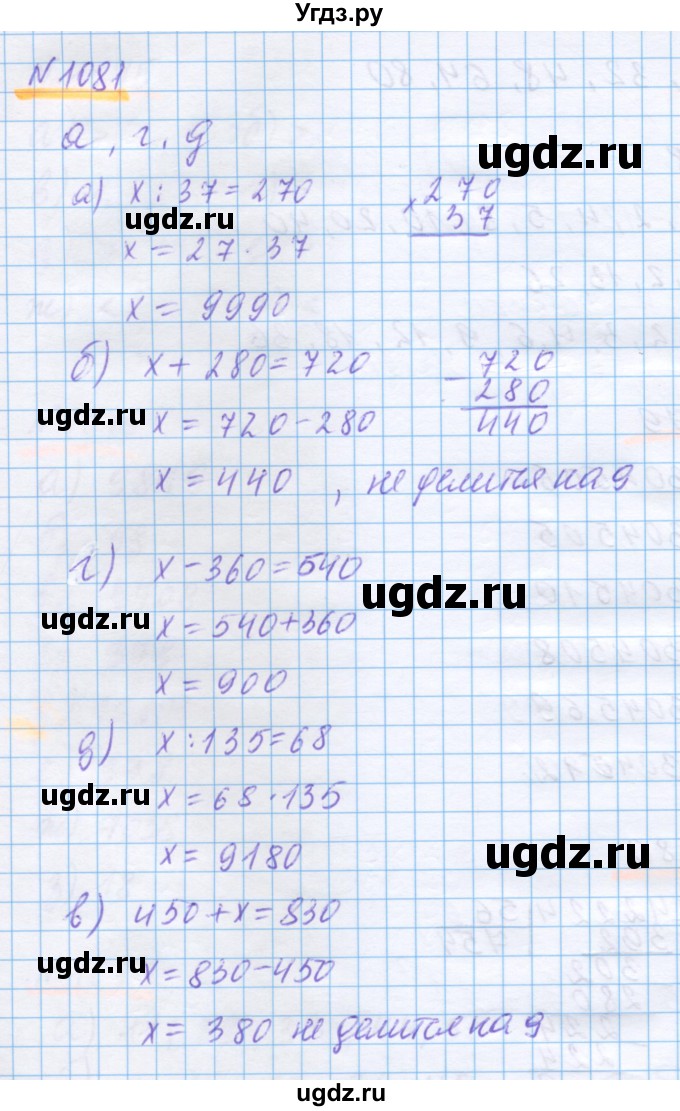 Угдз.ру
N 1081
а, г, д
ugdz.ru
а) x : 37 = 270
270
ugdz.ru
× 37
x = 27 · 37
x = 9990
б) x + 280 = 720
720
ugdz.ru
- 280
x = 720 - 280
440
x = 440 , не делится на 9
г) x - 360 = 540
ugdz.ru
ugdz.ru
x = 540 + 360
x = 900
д) x : 135 = 68
ugdz.ru
x = 68 · 135
ugdz.ru
x = 9180
в) 450 + x = 830
ugdz.ru
x = 830 - 450
x = 380 не делится на 9
ugdz.ru